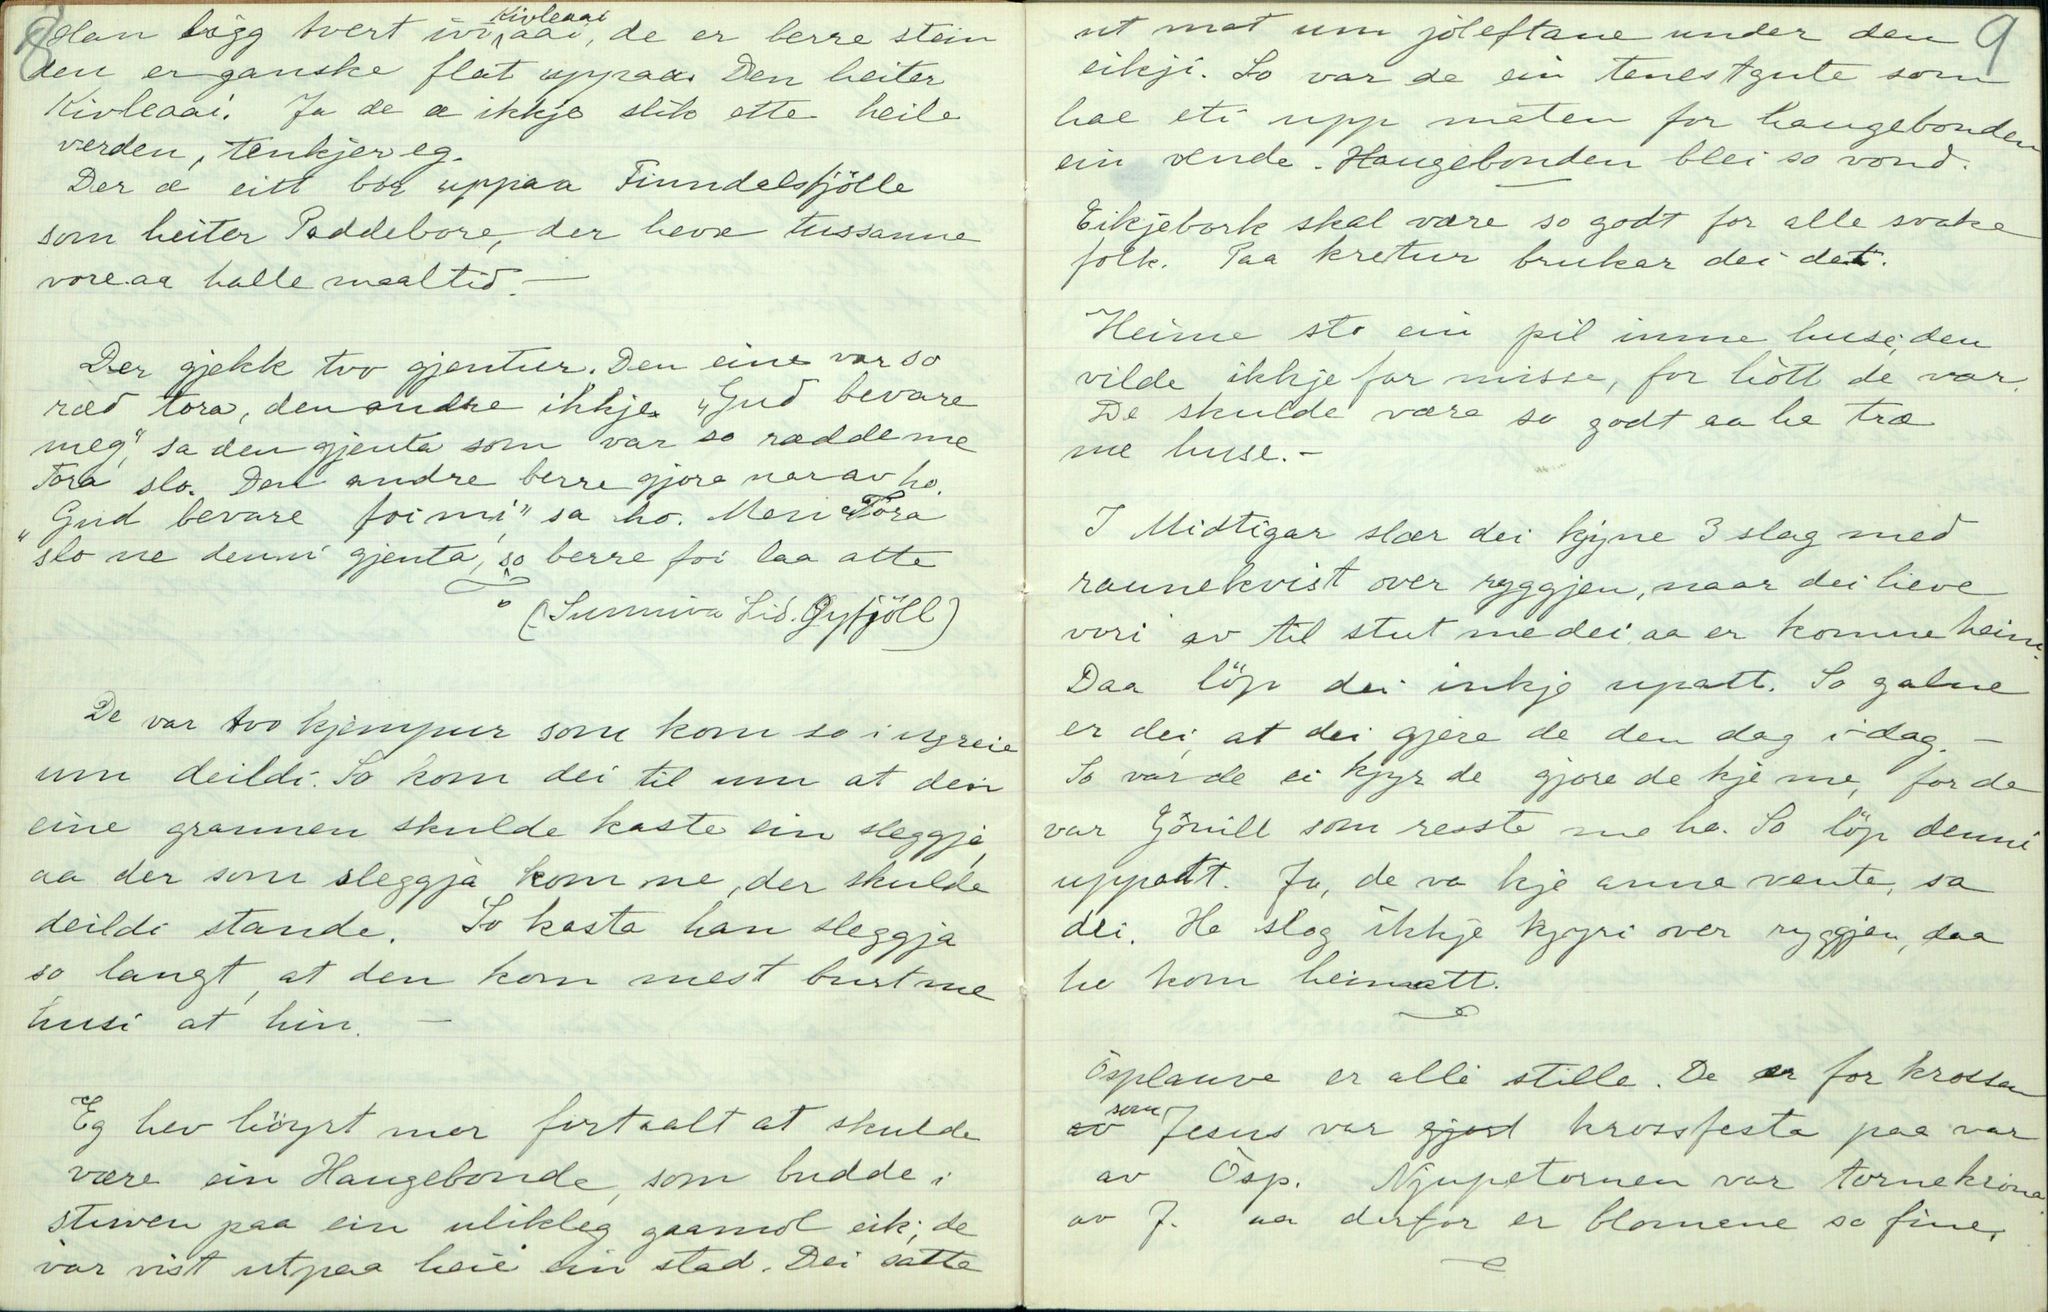 8
Han lögg tvert ivi Kivleaai, de er berre stein
den er ganske flat uppaa. Den heiter
Kivleaai. Ja de æ ikkje slik ette heile
verden, tenkjer eg.
Der æ eitt bór uppaa Finndalsfjölle
som heiter Paddebore, der heve tussanne
vore aa halle maaltid. —
Der gjekk tvo gjentur. Den eine var so
ræd tora, den andre ikkje. "Gud bevare
meg", sa den gjenta som var so rædde me
Tora slo. Den andre berre gjore nar av ho.
"Gud bevare foi mi", sa ho. Men Tora
slo ne denni gjenta, so berre foi laa atte
(Sunniva Lid. Gyfjöll)
De var tvo kjempur som kom so i ugreie
um deildi. So kom dei til um at den
eine grannen skulde kaste ein sleggje,
aa der som sleggja kom ne, der skulde
deildi stande. So kasta han sleggja
so langt, at den kom mest burt me
husi at hin. —
Eg hev höyrt mor fortaalt at skulde
være ein Haugebonde, som budde i
stuven paa ein ulikleg gaamol eik; de
var vist utpaa heie ein stad. Dei satte
9
ut mat um joleftane under den
eikji. So var de ein tenestgute som
hae eti upp maten for haugebonden
ein vende. Haugebonden blei so vond.
Eikjebork skal være so godt for alle svake
folk. Paa kretur bruker dei det.
Heime sto ein pil inme huse, den
vilde ikkje far misse, for hott de var.
De skulde være so godt aa he træ
me huse. -
I Midtigar slær dei kjyne 3 slag med
raunekvist over ryggjen, naar dei heve
vori av til stut me dei aa er komne heim.
Daa löp dei inkje upatt. So galne
er dei, at dei gjere de den dag i dag. —
So var de ei kjyr de gjore de kje me, for de
var Gönill som resste me ho. So löp denni
uppatt. Ja, de va kje anna vente, sa
dei. Ho slog ikkje kjyri over ryggjen, daa
ho kom heimatt.
Ösplauve er alli stille. De er for krossen
som Jesus var krossfesta paa var
av Osp. Njupetornen var tornekrona
av J. aa derfor er blomene so fine.